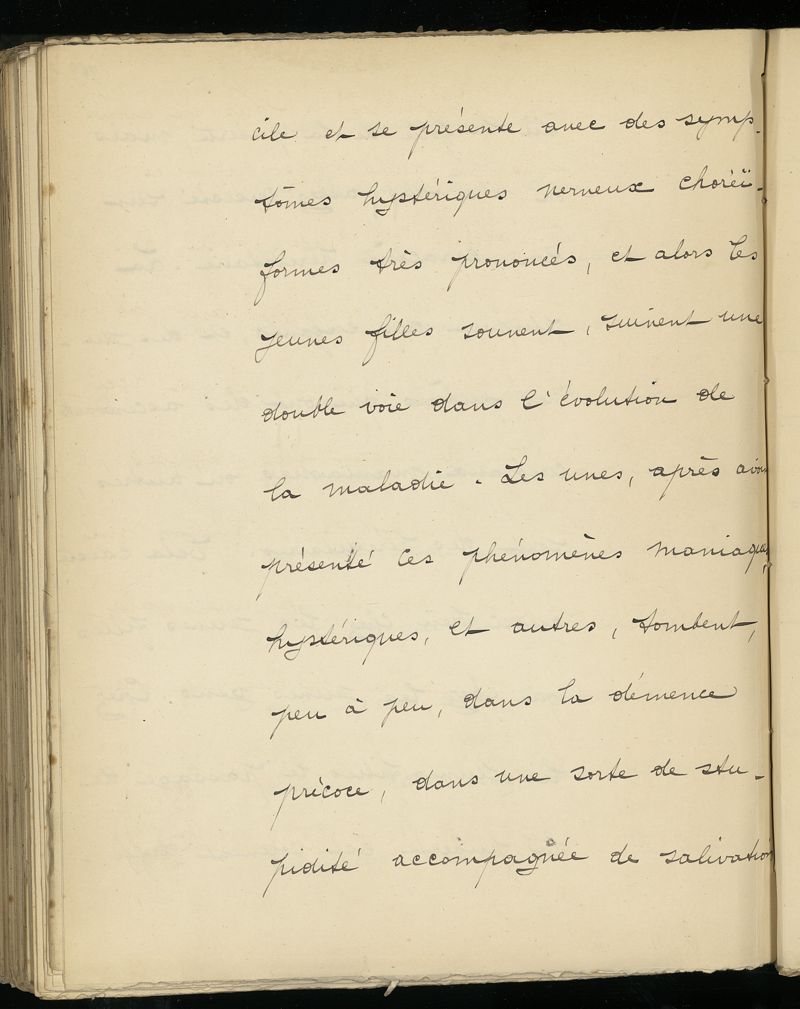 cile et se présente avec des symp-
tômes hystériques nerveux choréï-
formes très prononcés, et alors les
jeunes filles souvent, suivent une
double voie dans l'évolution de
la maladie. Les unes, après avoir
présenté ces phénomènes maniaques,
hystériques, et autres, tombent,
peu à peu, dans la démence
précoce, dans une sorte de stu-
pidité accompagnée de salivation